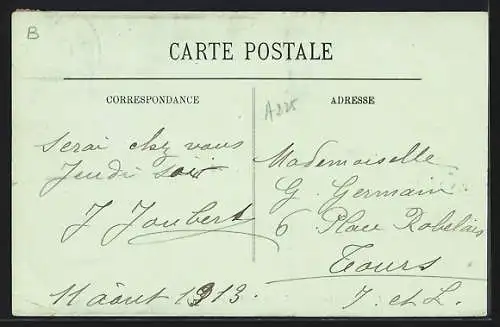 B
CARTE POSTALE
CORRESPONDANCE
ADRESSE
A225
Serai chez vous
Jeudi soir
J Joubert
11 août 1913.
Mademoiselle
G. Germain
6 Place Rabelais
Tours
I. et L.